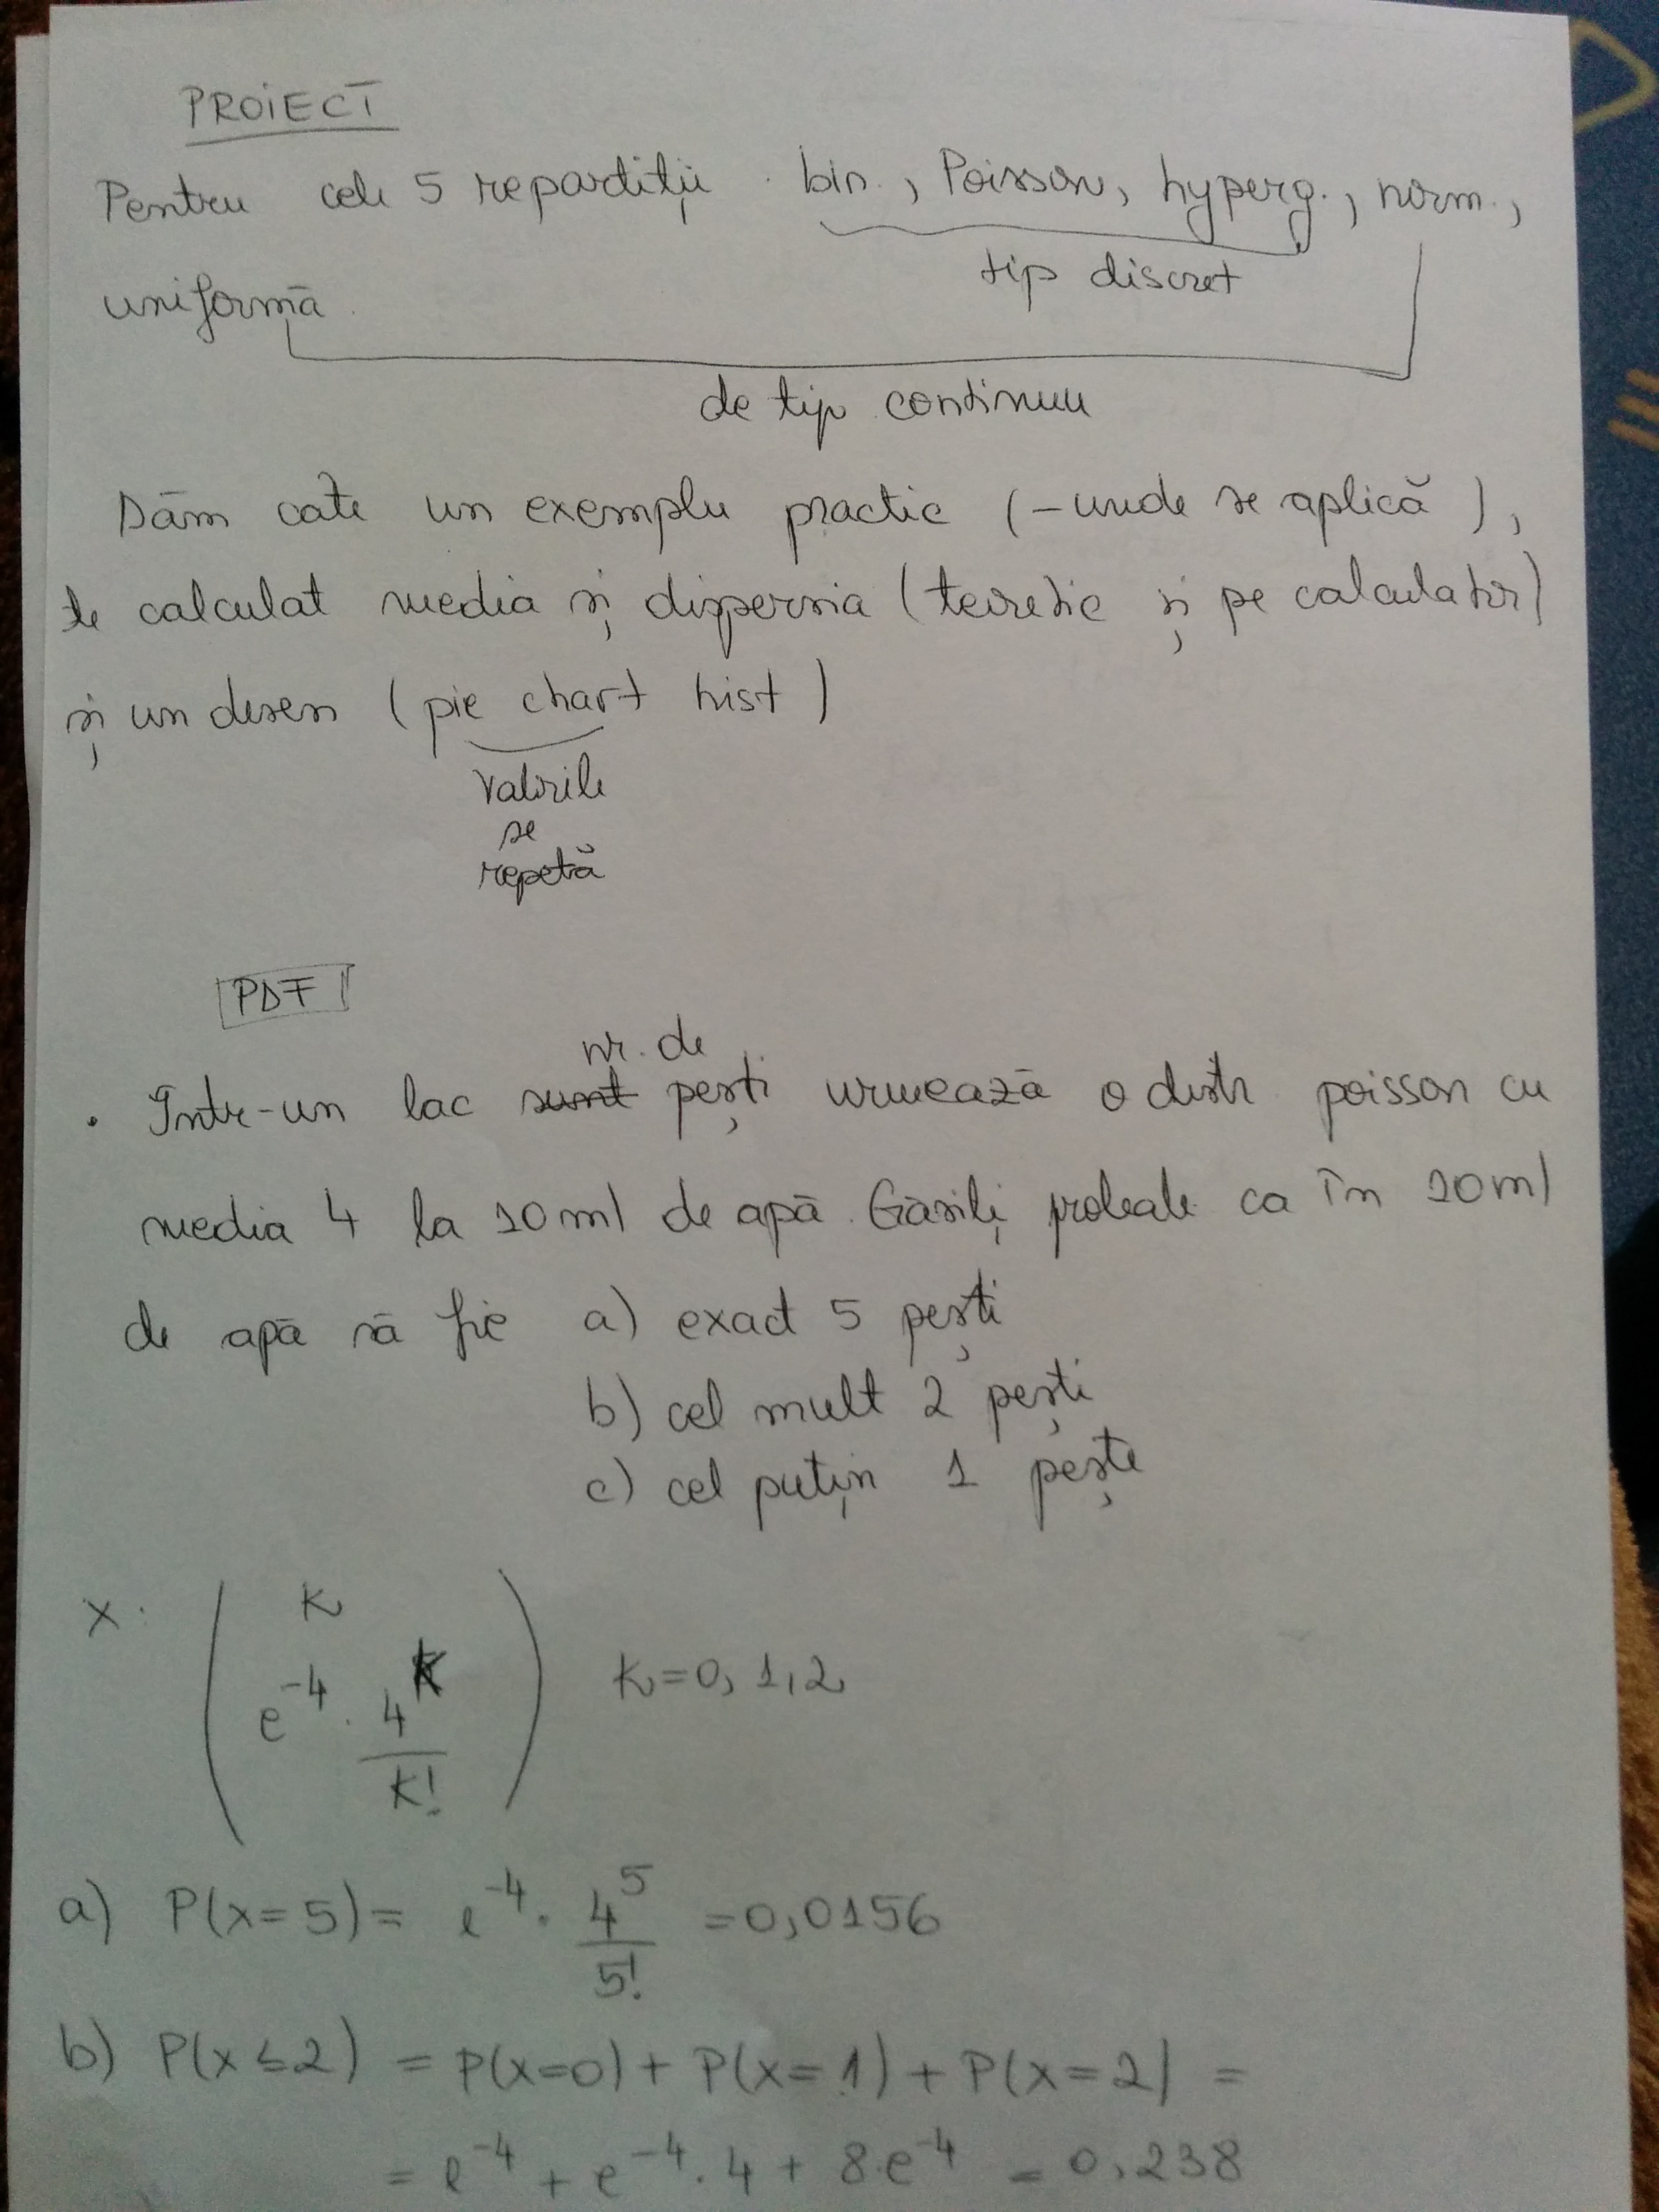 PROIECT
Pentru cele 5 repartiții bin., Poisson, hyperg., norm.,
tip discret
uniformă
de tip continuu
Dăm cate un exemplu practic (-unde se aplică),
de calculat media și dispersia (teoretic și pe calculator)
și un desen (pie chart hist)
valorile
se
repetă
PDF
nr. de
. Intr-un lac sunt pești urmează o distr. poisson cu
media 4 la 10 ml de apă. Găsiți probab. ca în 10 ml
de apă să fie a) exact 5 pești
b) cel mult 2 pești
c) cel puțin 1 pește
X: ( K
e^-4 . 4^K / K! ) K=0,1,2
a) P(x=5) = e^-4 . 4^5 / 5! = 0,0156
b) P(x≤2) = P(x=0) + P(x=1) + P(x=2) =
= e^-4 + e^-4 . 4 + 8.e^-4 = 0,238